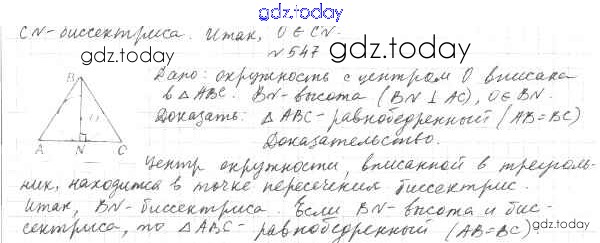 gdz.today
CN-биссектриса. Итак, O ∈ CN.
gdz.today
№547
gdz.today
Дано: окружность с центром O вписана
в △ABC. BN-высота (BN ⊥ AC), O ∈ BN.
Доказать: △ABC-равнобедренный (AB=BC)
Доказательство.
B
A N C
Центр окружности, вписанной в треуголь-
ник, находится в точке пересечения биссектрис.
Итак, BN-биссектриса. Если BN-высота и бис-
сектриса, то △ABC-равнобедренный (AB=BC)
gdz.today